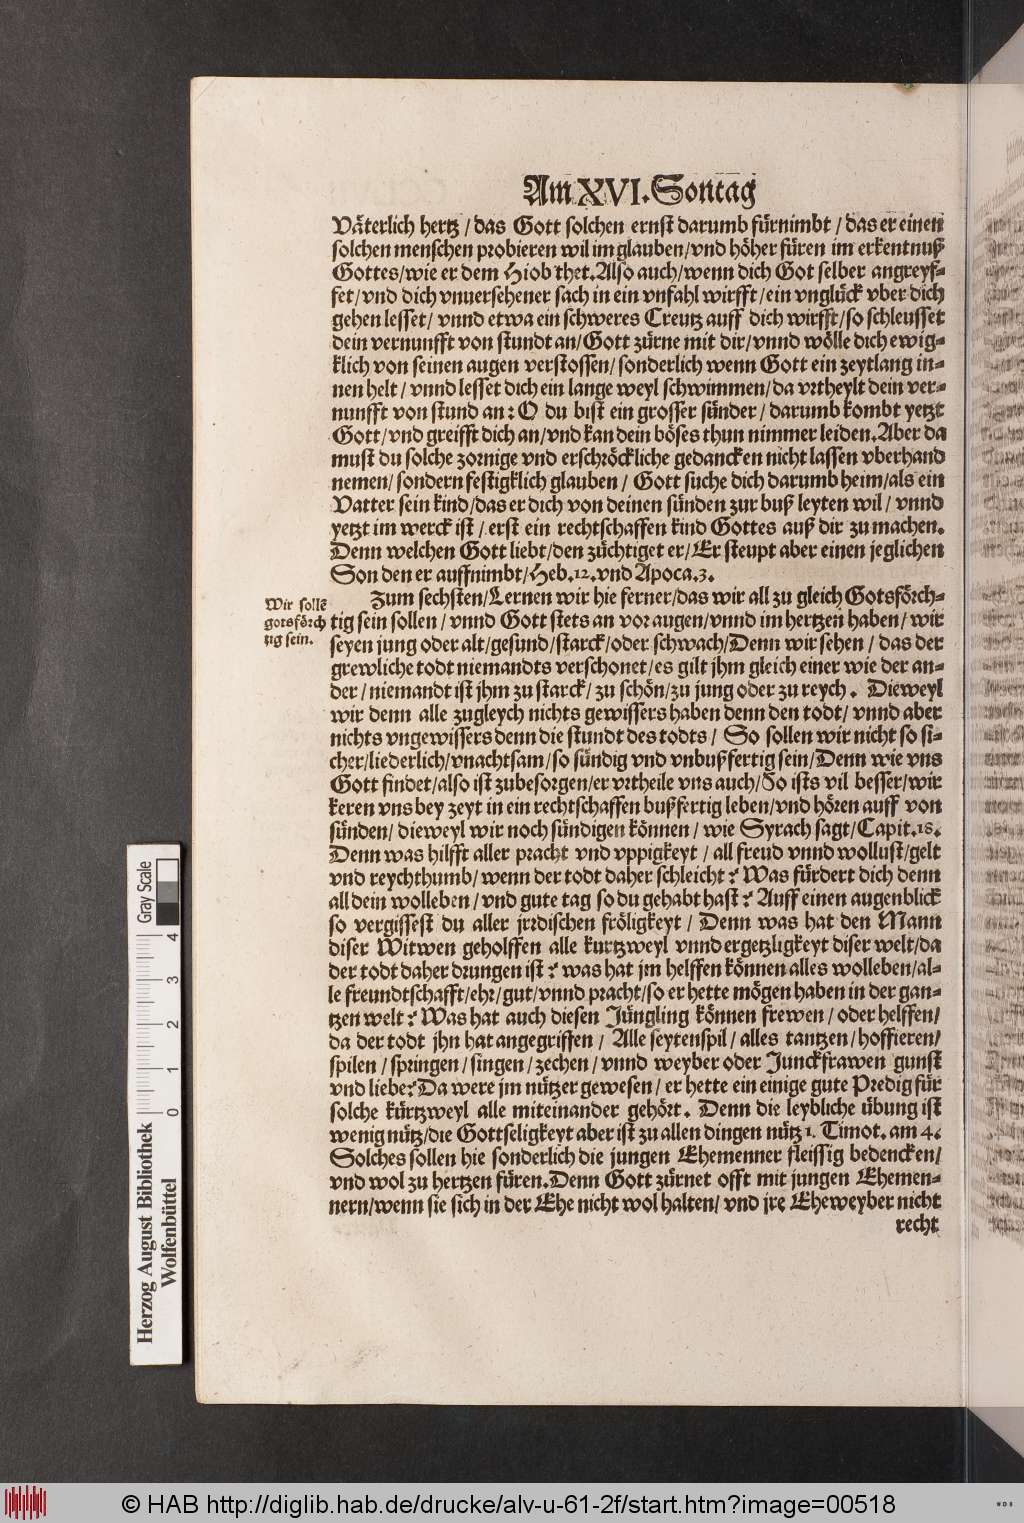 Am XVI. Sontag
Väterlich hertz / das Gott solchen ernst darumb fürnimbt / das er einen
solchen menschen probieren wil im glauben / vnd höher füren im erkentnuß
Gottes / wie er dem Hiob thet. Also auch / wenn dich Got selber angreyf-
fet / vnd dich vnuersehener sach in ein vnfahl wirfft / ein vnglück vber dich
gehen lesset / vnnd etwa ein schweres Creutz auff dich wirfft / so schleusset
dein vernunfft von stundt an / Gott zürne mit dir / vnnd wölle dich ewig-
klich von seinen augen verstossen / sonderlich wenn Gott ein zeytlang in-
nen helt / vnnd lesset dich ein lange weyl schwimmen / da vrtheylt dein ver-
nunfft von stund an : O du bist ein grosser sünder / darumb kombt yetzt
Gott / vnd greifft dich an / vnd kan dein böses thun nimmer leiden. Aber da
must du solche zornige vnd erschröckliche gedancken nicht lassen vberhand
nemen / sondern festigklich glauben / Gott suche dich darumb heim / als ein
Vatter sein kind / das er dich von deinen sünden zur buß leyten wil / vnnd
yetzt im werck ist / erst ein rechtschaffen kind Gottes auß dir zu machen.
Denn welchen Gott liebt / den züchtiget er / Er steupt aber einen jeglichen
Son den er auffnimbt / Heb. 12. vnd Apoca. 3.
Wir sollē
gotsförch
tig sein.
Zum sechsten / Lernen wir hie ferner / das wir all zu gleich Gotsförch-
tig sein sollen / vnnd Gott stets an vor augen / vnnd im hertzen haben / wir
seyen jung oder alt / gesund / starck / oder schwach / Denn wir sehen / das der
grewliche todt niemandts verschonet / es gilt jhm gleich einer wie der an-
der / niemandt ist jhm zu starck / zu schön / zu jung oder zu reych. Dieweyl
wir denn alle zugleych nichts gewissers haben denn den todt / vnnd aber
nichts vngewissers denn die stundt des todts / So sollen wir nicht so si-
cher / liederlich / vnachtsam / so sündig vnd vnbußfertig sein / Denn wie vns
Gott findet / also ist zubesorgen / er vrtheile vns auch / So ists vil besser / wir
keren vns bey zeyt in ein rechtschaffen bußfertig leben / vnd hören auff von
sünden / dieweyl wir noch sündigen können / wie Syrach sagt / Capit. 18.
Denn was hilfft aller pracht vnd vppigkeyt / all freud vnnd wollust / gelt
vnd reychthumb / wenn der todt daher schleicht ? Was fürdert dich denn
all dein wolleben / vnd gute tag so du gehabt hast ? Auff einen augenblick
so vergissest du aller jrrdischen fröligkeyt / Denn was hat den Mann
diser Witwen geholffen alle kurtzweyl vnnd ergetzligkeyt diser welt / da
der todt daher drungen ist ? was hat jm helffen können alles wolleben / al-
le freundtschafft / ehr / gut / vnnd pracht / so er hette mögen haben in der gan-
tzen welt ? Was hat auch diesen Jüngling können frewen / oder helffen /
da der todt jhn hat angegriffen / Alle seytenspil / alles tantzen / hoffieren /
spilen / springen / singen / zechen / vnnd weyber oder Junckfrawen gunst
vnd liebe? Da were jm nützer gewesen / er hette ein einige gute Predig für
solche kürtzweyl alle miteinander gehört. Denn die leybliche übung ist
wenig nütz / die Gottseligkeyt aber ist zu allen dingen nütz 1. Timot. am 4.
Solches sollen hie sonderlich die jungen Ehemenner fleissig bedencken /
vnd wol zu hertzen füren. Denn Gott zürnet offt mit jungen Ehemen-
nern / wenn sie sich in der Ehe nicht wol halten / vnd jre Eheweyber nicht
recht
Herzog August Bibliothek
Wolfenbüttel
0 1 2 3 4
Gray Scale
© HAB http://diglib.hab.de/drucke/alv-u-61-2f/start.htm?image=00518